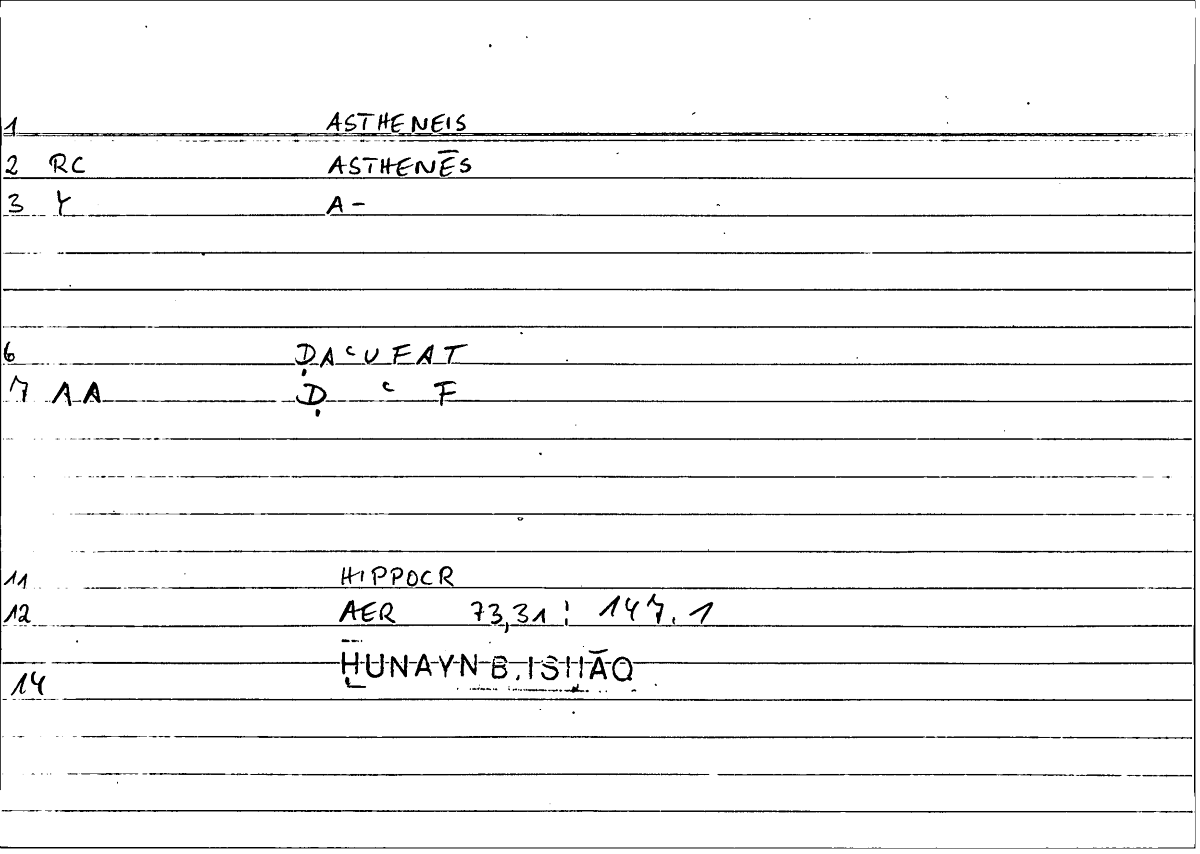 1 ASTHENEIS
2 RC ASTHENĒS
3 Y A-
6 ḌAᶜUFAT
7 AA Ḍ ᶜ F
11 HIPPOCR
12 AER 73,31 ; 147.1
ḤUNAYN B. ISḤĀQ
14